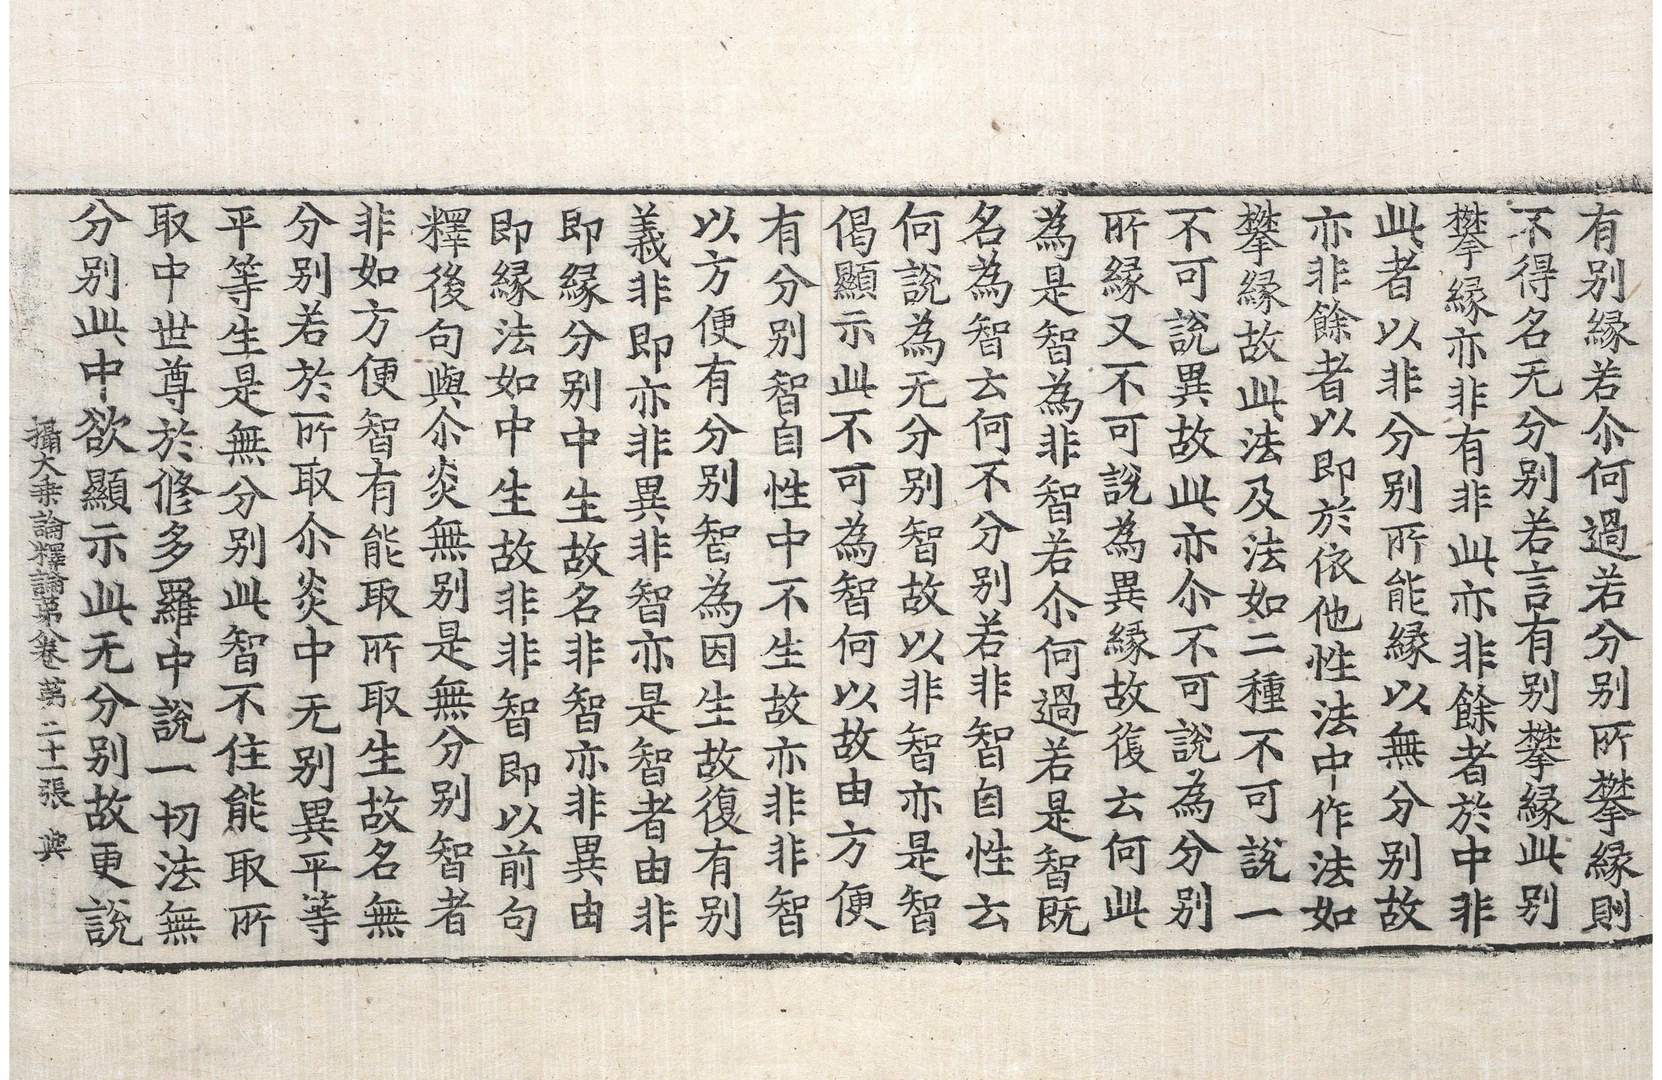 有别縁若尒何過若分别所攀縁則
不得名无分别若言有别攀縁此别
攀縁亦非有非此亦非餘者於中非
此者以非分别所能縁以無分别故
亦非餘者以即於依他性法中作法如
攀縁故此法及法如二種不可說一
不可說異故此亦尒不可說為分别
所縁又不可說為異縁故復云何此
為是智為非智若尒何過若是智既
名為智云何不分别若非智自性云
何說為无分别智故以非智亦是智
偈顯示此不可為智何以故由方便
有分别智自性中不生故亦非非智
以方便有分别智為因生故復有别
義非即亦非異非智亦是智者由非
即縁分别中生故名非智亦非異由
即縁法如中生故非非智即以前句
釋後句與尒炎無别是無分别智者
非如方便智有能取所取生故名無
分别若於所取尒炎中无别異平等
平等生是無分别此智不住能取所
取中世尊於修多羅中說一切法無
分别此中欲顯示此无分别故更說
攝大乘論釋論第八卷 第二十一張 典